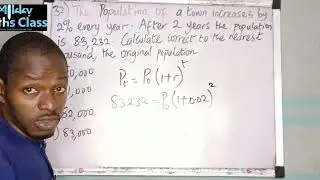 Mickey
hs Class
37) The Population of a town increases by
2% every year. After 2 years the population
is 83,232. Calculate correct to the nearest
thousand, the original population
0,000
Pt = Po (1+r)^t
,000
83232 = Po (1+0.02)^2
2,000
83,000